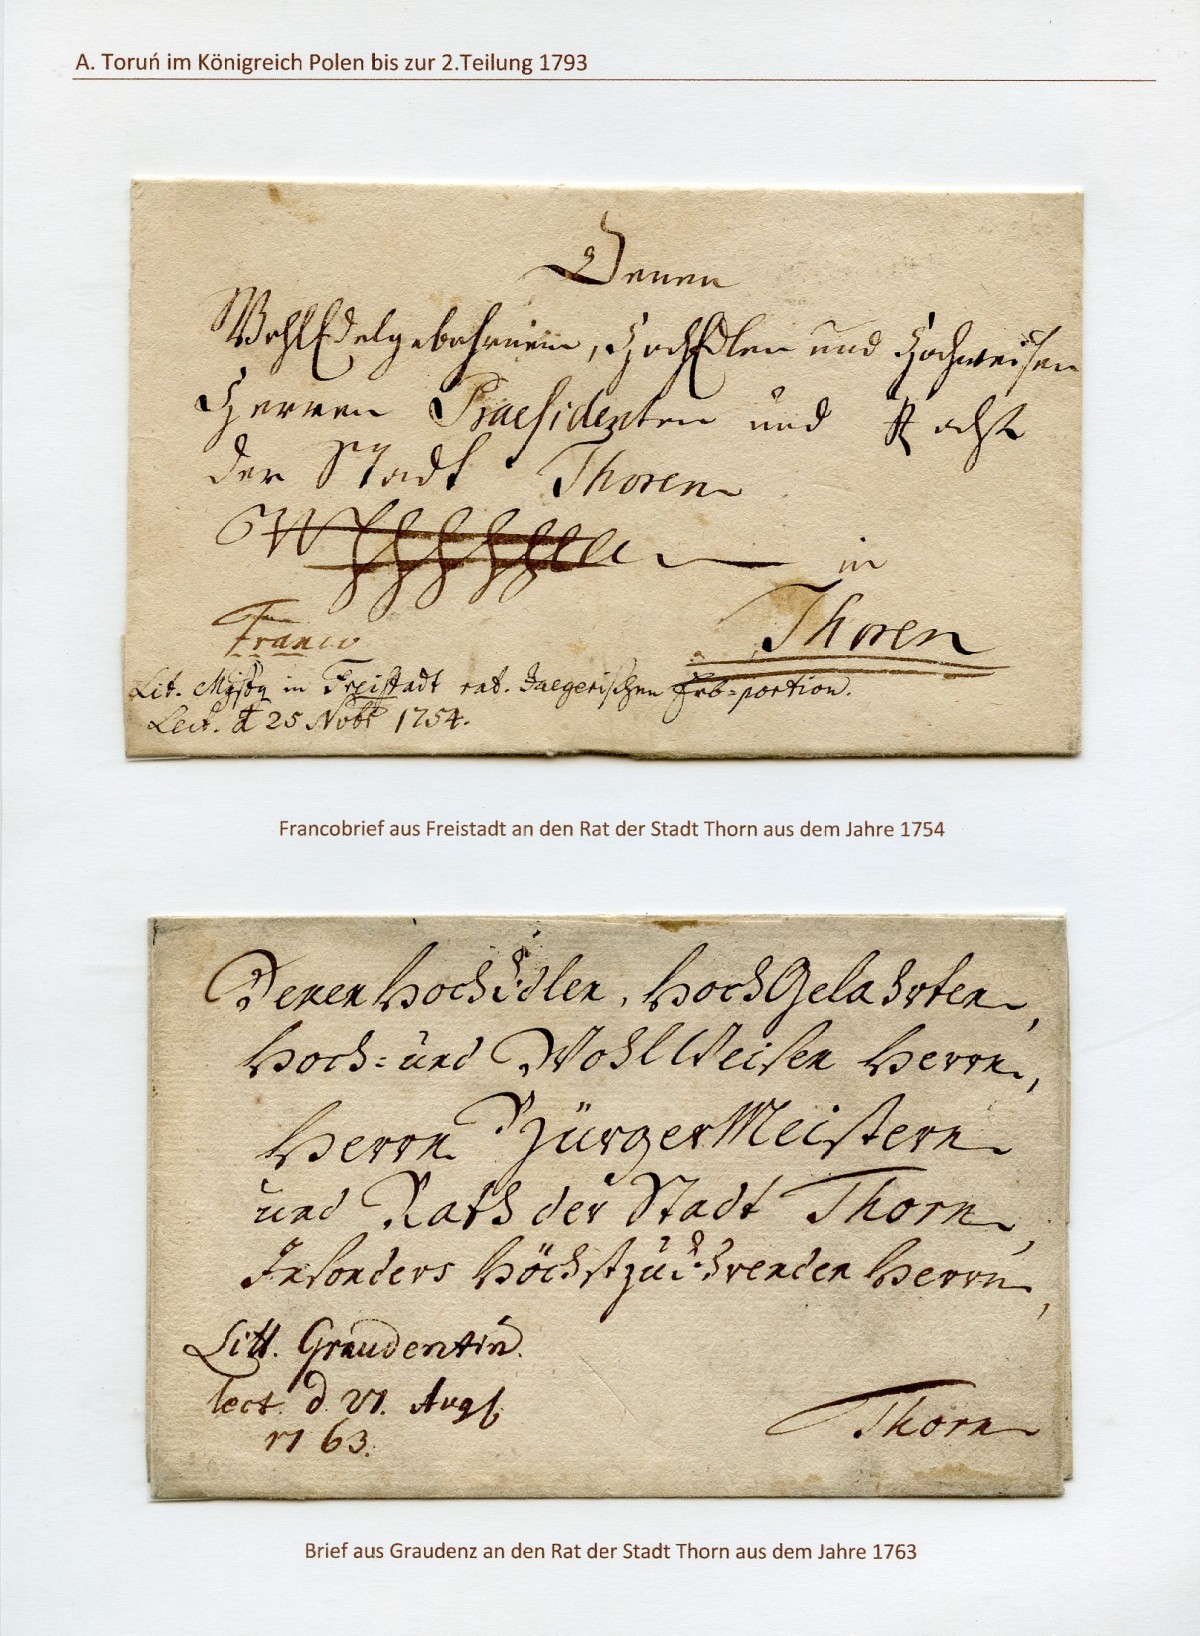 A. Toruń im Königreich Polen bis zur 2.Teilung 1793
Denen
WohlEdelgebohrnen, HochEdlen und Hochweisen
Herren Praesidenten und Raht
der Stadt Thoren
in
Thoren
Franco
Lit. in Freistadt rat. Jaegerischen Erb=portion.
Lect. d 25 Nobr 1754.
Francobrief aus Freistadt an den Rat der Stadt Thorn aus dem Jahre 1754
Denen HochEdlen, HochGelahrten,
Hoch= und WohlWeisen Herrn,
Herrn BürgerMeistern
und Rath der Stadt Thorn,
Insonders HöchstzuEhrenden Herrn,
Litt. Graudentin.
lect. d. 21. Augs.
1763.
Thorn
Brief aus Graudenz an den Rat der Stadt Thorn aus dem Jahre 1763